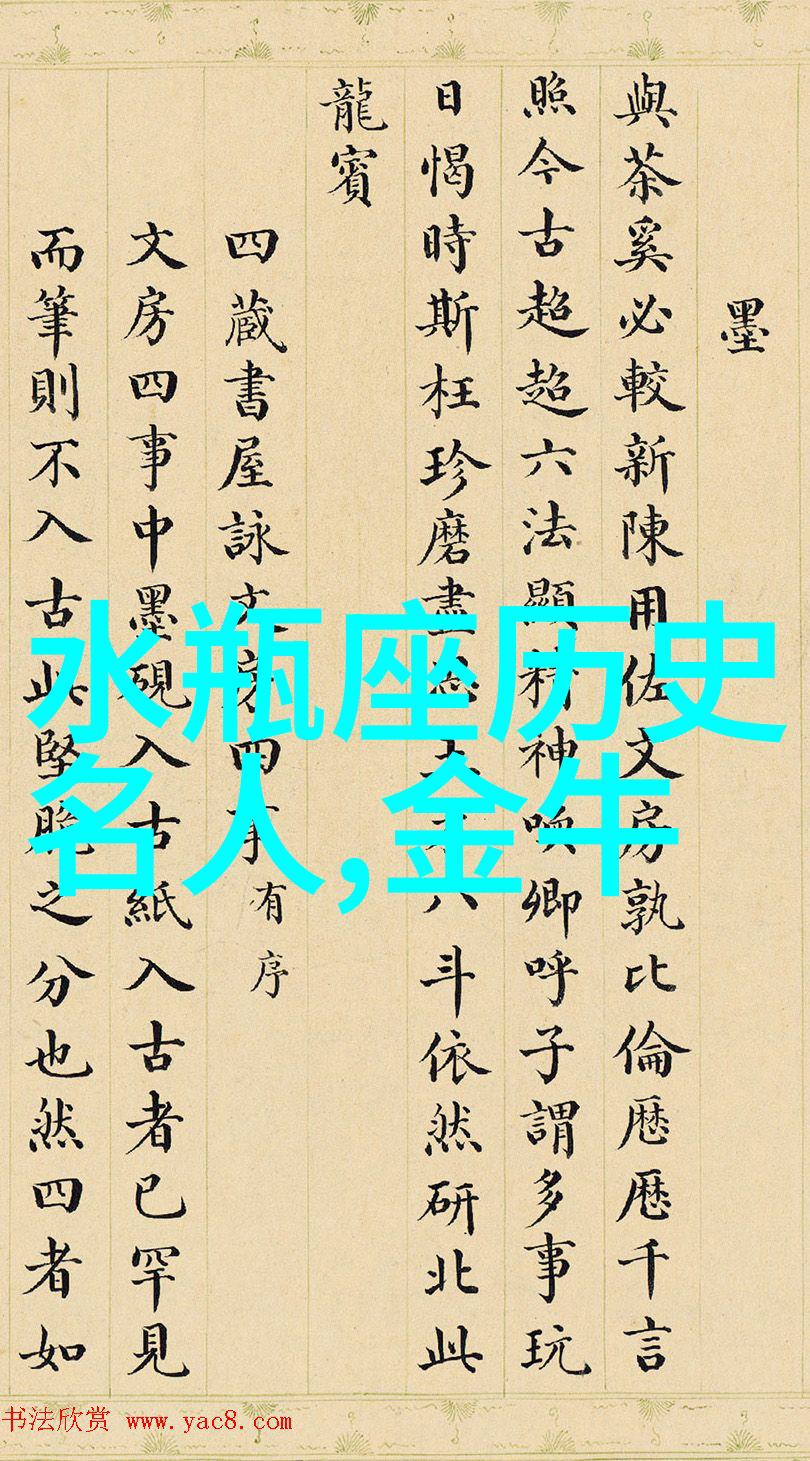 墨
與茶奚必較新陳用佐文房孰比倫歷歷千言
照今古超超六法顯精神喚卿呼子謂多事玩
日愒時斯枉珍磨盡八斗依然研北此
龍賓
四藏書屋詠文房四事有序
文房四事中墨硯入古紙入古者已罕見
而筆則不入古此堅脆之分也然四者如
水瓶座历史
名人,金牛
书法欣赏 www.yac8.com